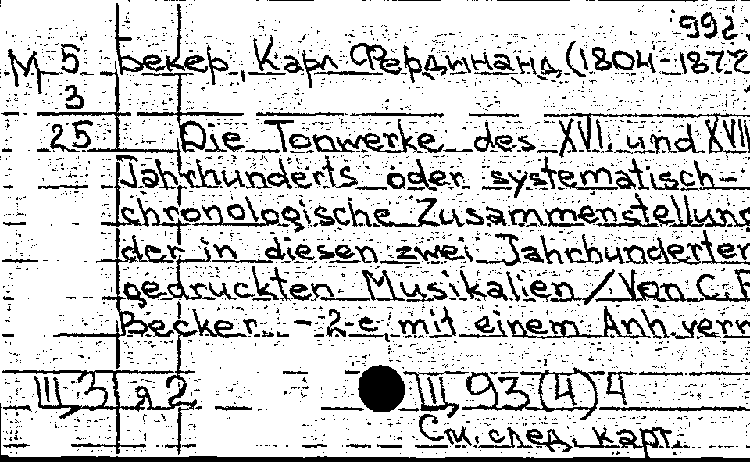 992
М 5 Бекер, Карл Фердинанд (1804-1872
3
25 Die Tonwerke des XVI. und XVII
Jahrhunderts oder systematisch-
chronologische Zusammenstellung
der in diesen zwei Jahrhunderten
gedruckten Musikalien / Von C.F.
Becker. - 2-e, mit einem Anh. verm
III,3 я2 III, 93(4)4
См. след. карт.